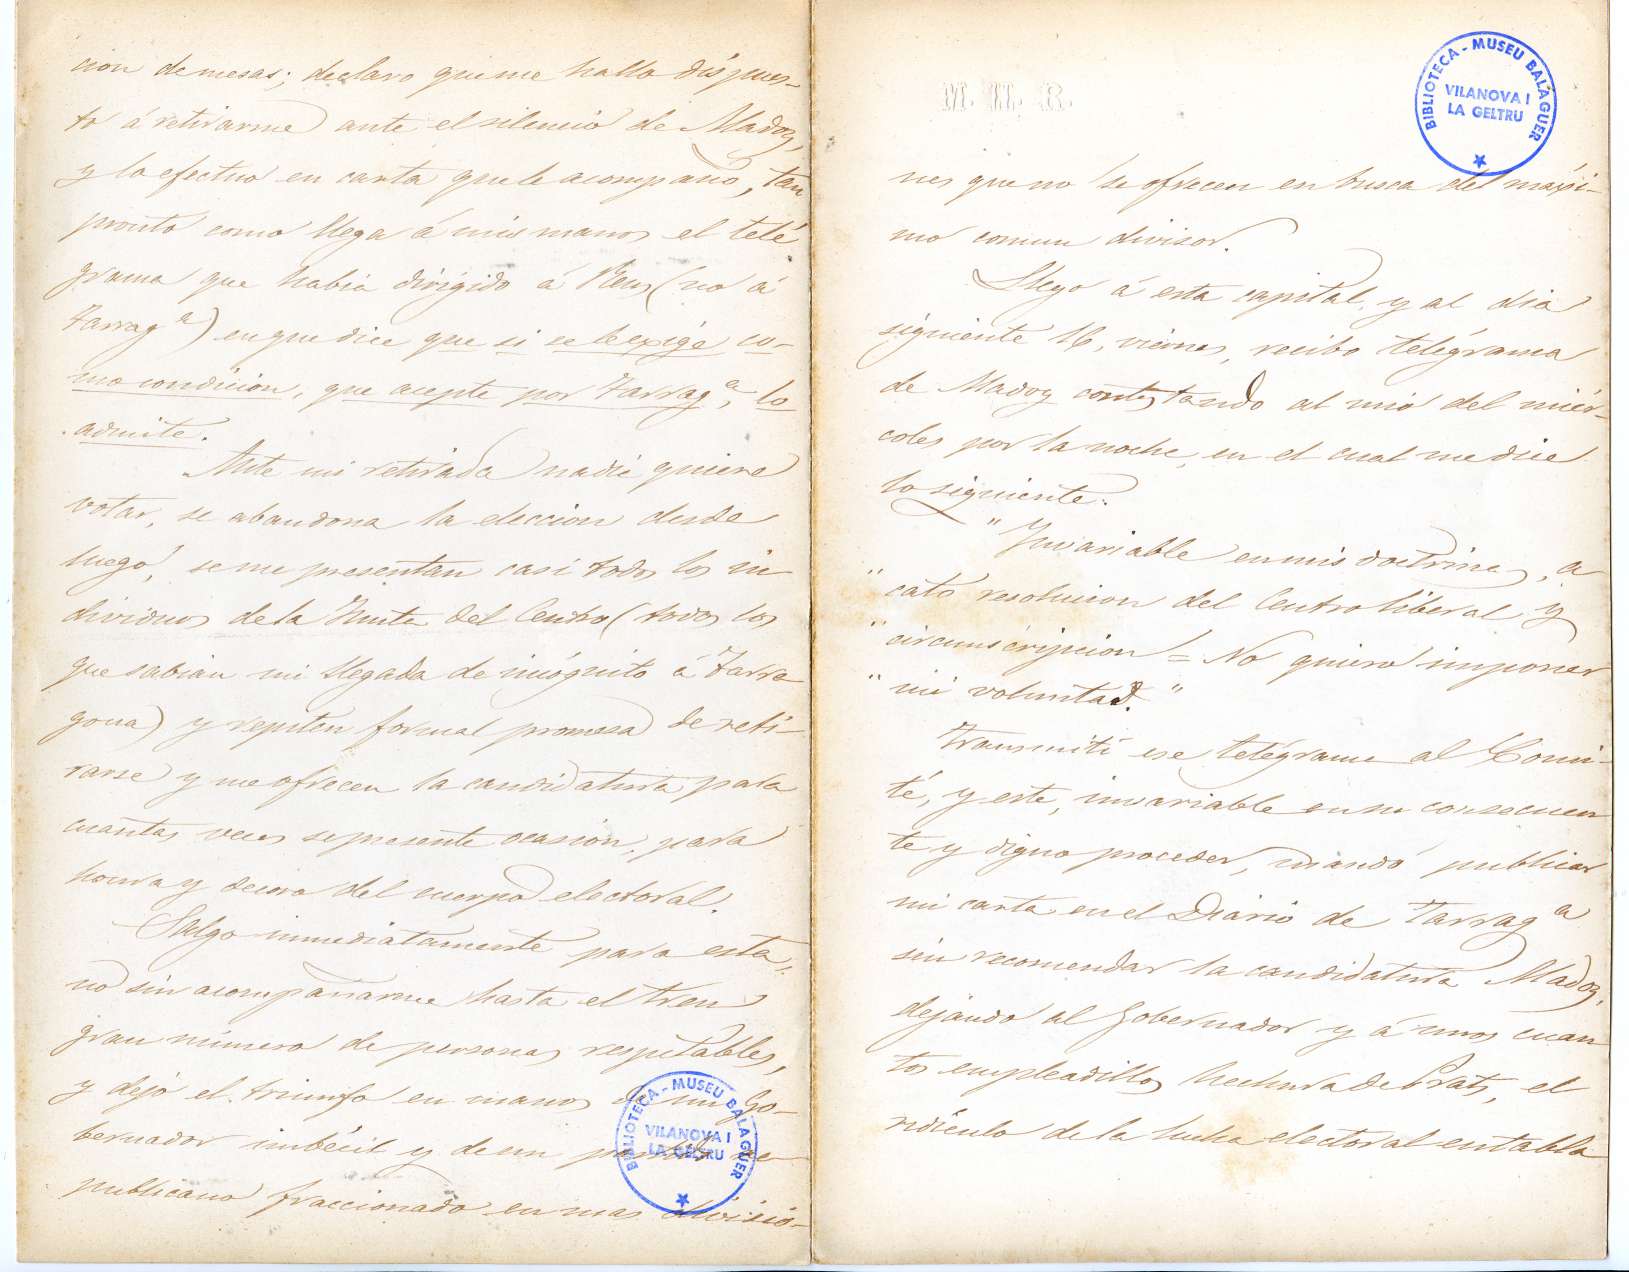 cion de mesas; declaro que me hallo dispues-
to á retirarme ante el silencio de Madoz,
y lo efectuo en carta que le acompaño, tan
pronto como llega á mis manos el telé
grama que habia dirigido á Reus (no á
Tarrag.ª) en que dice que si se le exige co-
mo condicion, que acepte por Tarrag.ª, lo
admite.
Ante mi retirada nadie quiere
votar, se abandona la eleccion desde
luego, se me presentan casi todos los in
dividuos de la Junta del Centro (todos los
que sabian mi llegada de incógnito á Tarra
gona) y repiten formal promesa de reti-
rarse y me ofrecen la candidatura para
cuantas veces se presente ocasión, para
honra y decoro del cuerpo electoral.
Salgo inmediatamente para esta,
no sin acompañarme hasta el tren
gran número de personas respetables,
y dejo el triunfo en manos de un Go-
bernador imbécil y de un partido re-
publicano fraccionado en mas divisio-
BIBLIOTECA - MUSEU BALAGUER
VILANOVA I
LA GELTRU
M. M. R.
BIBLIOTECA - MUSEU BALAGUER
VILANOVA I
LA GELTRU
nes que no se ofrecen en busca del máxi-
mo comun divisor.
Llego á esta capital, y al dia
siguiente 16, viernes, recibo telégrama
de Madoz contestando al mio del miér-
coles por la noche, en el cual me dice
lo siguiente:
"Invariable en mis doctrinas, a
"cato resolucion del Centro liberal y
"circunscripcion = No quiero imponer
"mi voluntad."
Transmití ese telégrama al Comi-
té, y este, invariable en su consecuen
te y digno proceder, mandó publicar
mi carta en el Diario de Tarrag.ª
sin recomendar la candidatura Madoz,
dejando al Gobernador y á unos cuan
tos empleadillos hechura de Prats, el
ridículo de la lucha electoral entabla